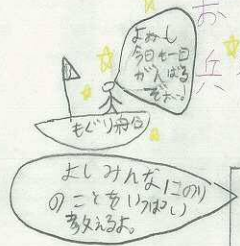 お兵
よぉーし
今日も一日
がんばる
ぞぉー。
もぐり舟
よしみんなにのり
のことをいっぱい
教えるよ。